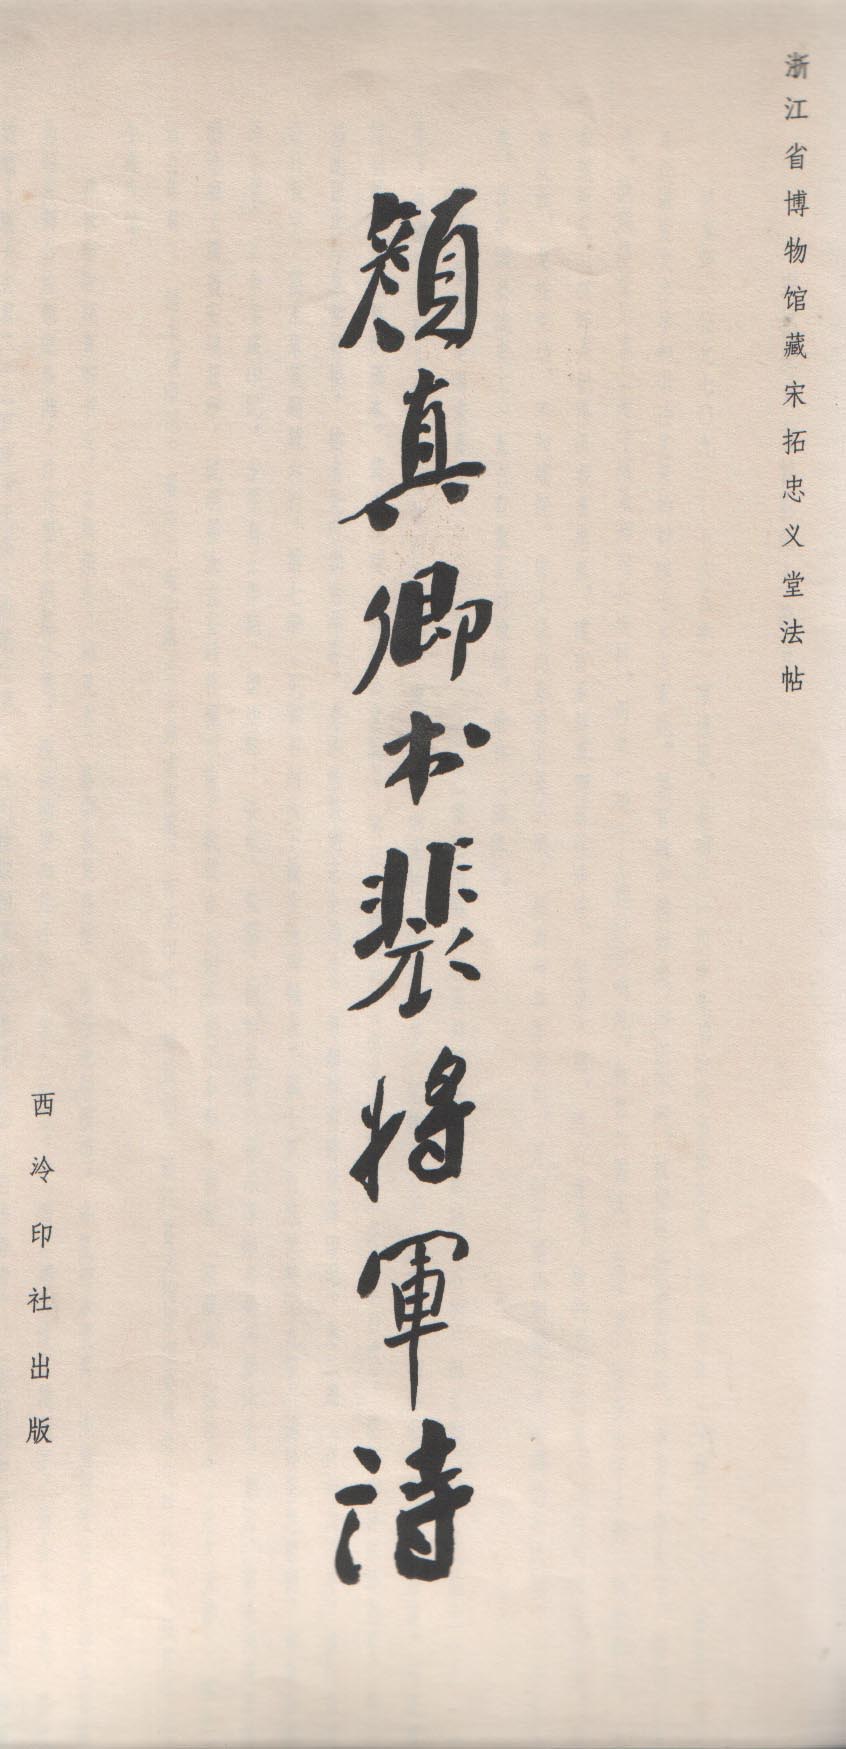 浙江省博物馆藏宋拓忠义堂法帖
顔真卿书裴将軍诗
西泠印社出版